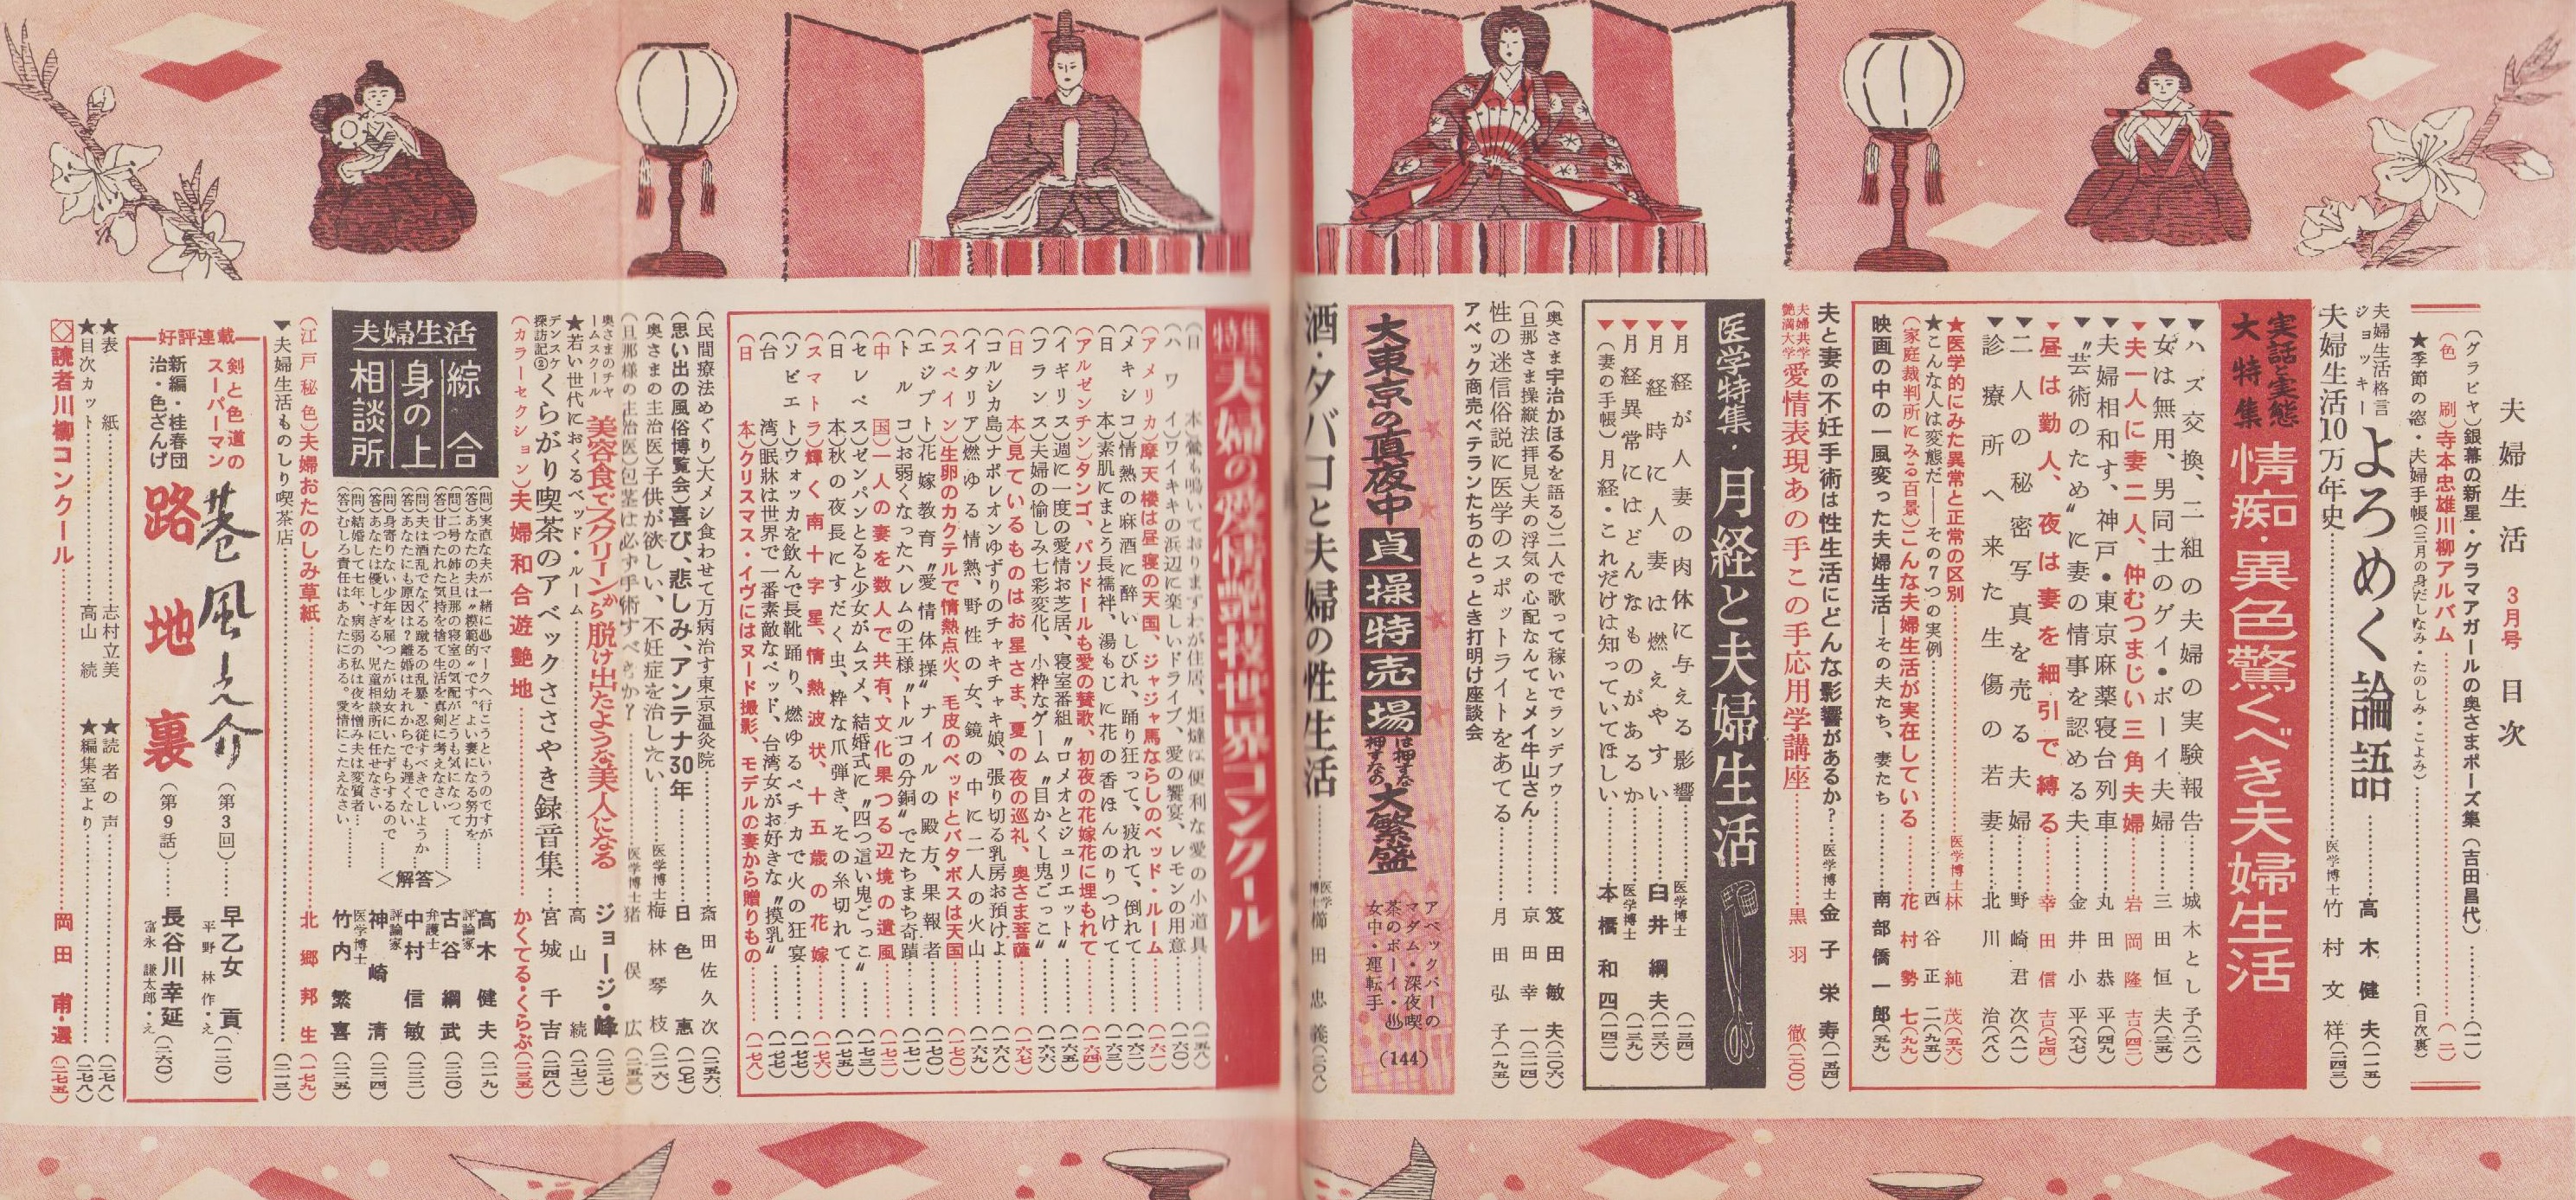 夫婦生活 3月号 目次
(グラビヤ)銀幕の新星・グラマアガールの奥さまポーズ集(吉田昌代)
(色刷)寺本忠雄川柳アルバム
★季節の窓・夫婦手帳(三月の身だしなみ・たのしみ・こよみ)(目次裏)
夫婦生活格言ジョッキー よろめく論語 高木健夫
夫婦生活10万年史 医学博士 竹村文祥
実話と実態 大特集 情痴・異色驚くべき夫婦生活
▼ハズ交換、二組の夫婦の実験報告 城木とし子
▼女は無用、男同士のゲイ・ボーイ夫婦 三田恒夫
▼夫一人に妻二人、仲むつまじい三角夫婦 岩岡隆吉
▼夫婦相和す、神戸・東京麻薬寝台列車 丸田恭平
▼〝芸術のため〟に妻の情事を認める夫 金井小平
▼昼は勤人、夜は妻を細引で縛る 幸田信吉
▼二人の秘密写真を売る夫婦 野崎君次
▼診療所へ来た生傷の若妻 北川治
★医学的にみた異常と正常の区別 医学博士 林純茂
★こんな人は変態だ――その7つの実例 西谷正二
(家庭裁判所にみる百景)こんな夫婦生活が実在している 花村勢七
映画の中の一風変った夫婦生活―その夫たち、妻たち 南部僑一郎
夫と妻の不妊手術は性生活にどんな影響があるか? 医学博士 金子栄寿
夫婦共学艶満大学 愛情表現あの手この手応用学講座 黒羽徹
医学特集・月経と夫婦生活
▼月経が人妻の肉体に与える影響 医学博士
▼月経時に人妻は燃えやすい 臼井綱夫
▼月経異常にはどんなものがあるか 医学博士
▼(妻の手帳)月経・これだけは知っていてほしい 本橋和四
(奥さま宇治かほるを語る)二人で歌って稼いでランデブゥ 笈田敏夫
(旦那さま操縦法拝見)夫の浮気の心配なんてとメイ牛山さん 京田幸一
性の迷信俗説に医学のスポットライトをあてる 月田弘子
アベック商売ベテランたちのとっとき打明け座談会
大東京の真夜中 貞操特売場は押すな押すなの大繁盛
アベックバーのマダム・深夜喫茶のボーイ・♨女中・運転手
(144)
酒・タバコと夫婦の性生活 医学博士 櫛田忠義
特集 夫婦の愛情艶技世界コンクール
(日本)鶯も鳴いておりますわが住居、炬燵は便利な愛の小道具
(ハワイ)ワイキキの浜辺に楽しいドライブ、愛の饗宴、レモンの用意
(アメリカ)摩天楼は昼寝の天国、ジャジャ馬ならしのベッド・ルーム
(メキシコ)情熱の麻酒に酔いしびれ、踊り狂って、疲れて、倒れて
(日本)素肌にまとう長襦袢、湯もじに花の香ほんのりつけて
(アルゼンチン)タンゴ、パソドールも愛の賛歌、初夜の花嫁花に埋もれて
(イギリス)週に一度の愛情お芝居、寝室番組〝ロメオとジュリエット〟
(フランス)夫婦の愉しみ七彩変化、小粋なゲーム〝目かくし鬼ごっこ〟
(日本)見ているものはお星さま、夏の夜の巡礼、奥さま菩薩
(コルシカ島)ナポレオンゆずりのチャキチャキ娘、張り切る乳房お預けよ
(イタリア)燃ゆる情熱、野性の女、鏡の中に二人の火山
(スペイン)生卵のカクテルで情熱点火、毛皮のベッドとバタボスは天国
(エジプト)花嫁教育〝愛情体操〟ナイルの殿方、果報者
(トルコ)お弱くなったハレムの王様〝トルコの分銅〟でたちまち奇蹟
(中国)一人の妻を数人で共有、文化果つる辺境の遺風
(セレベス)ゼンパンとると少女がムスメ、結婚式に〝四つ這い鬼ごっこ〟
(日本)秋の夜長にすだく虫、粋な爪弾き、その糸切れて
(スマトラ)輝く南十字星、情熱波状、十五歳の花嫁
(ソビエト)ウォッカを飲んで長靴踊り、燃ゆるペチカで火の狂宴
(台湾)眠牀は世界で一番素敵なベッド、台湾女がお好きな〝摸乳〟
(日本)クリスマス・イヴにはヌード撮影、モデルの妻から贈りもの
(民間療法めぐり)大メシ食わせて万病治す東京温灸院 斎田佐久次
(思い出の風俗博覧会)喜び、悲しみ、アンテナ30年 日色恵
(奥さまの主治医)子供が欲しい、不妊症を治したい 医学博士 梅林琴枝
(旦那様の主治医)包茎は必ず手術すべきか? 医学博士 猪俣広
奥さまのチャームスクール 美容食でスクリーンから脱け出たような美人になる ジョージ・峰
★若い世代におくるベッド・ルーム 高山続
デンスケ探訪記② くらがり喫茶のアベックささやき録音集 宮城千吉
(カラーセクション)夫婦和合遊艶地 かくてる・くらぶ
夫婦生活 綜合身の上相談所
(問)実直な夫が一緒に♨マークへ行こうというのですが
(答)あなたの夫は〝模範的〟です。よい妻になる努力を 高木健夫
(問)二号の姉と旦那の寝室の気配がどうも気になって
(答)甘つたれた気持を捨て生活を真剣に考えなさい 評論家 古谷綱武
(問)夫は酒乱でなぐる蹴るの乱暴、忍従すべきでしょうか
(答)あなたにも原因は?離婚はそれからでも遅くない 弁護士 中村信敏
(問)身寄りない少年を雇ったが幼女にいたずらするので
(答)あなたは優しすぎる、児童相談所に任せなさい 評論家 神崎清
(問)結婚して七年、病弱の私は夜を憎み夫は変質者
(答)むしろ責任はあなたにある。愛情にこたえなさい 医学博士 竹内繁喜
<解答>
(江戸秘色)夫婦おたのしみ草紙 北郷邦生
▼夫婦生活ものしり喫茶店
好評連載
剣と色道のスーパーマン 巷風之介(第3回) 早乙女貢 平野林作・え
新編・桂春団治・色ざんげ 路地裏(第9話) 長谷川幸延 富永謙太郎・え
★表紙 志村立美 ★読者の声
★目次カット 高山続 ★編集室より
◇読者川柳コンクール 岡田甫・選